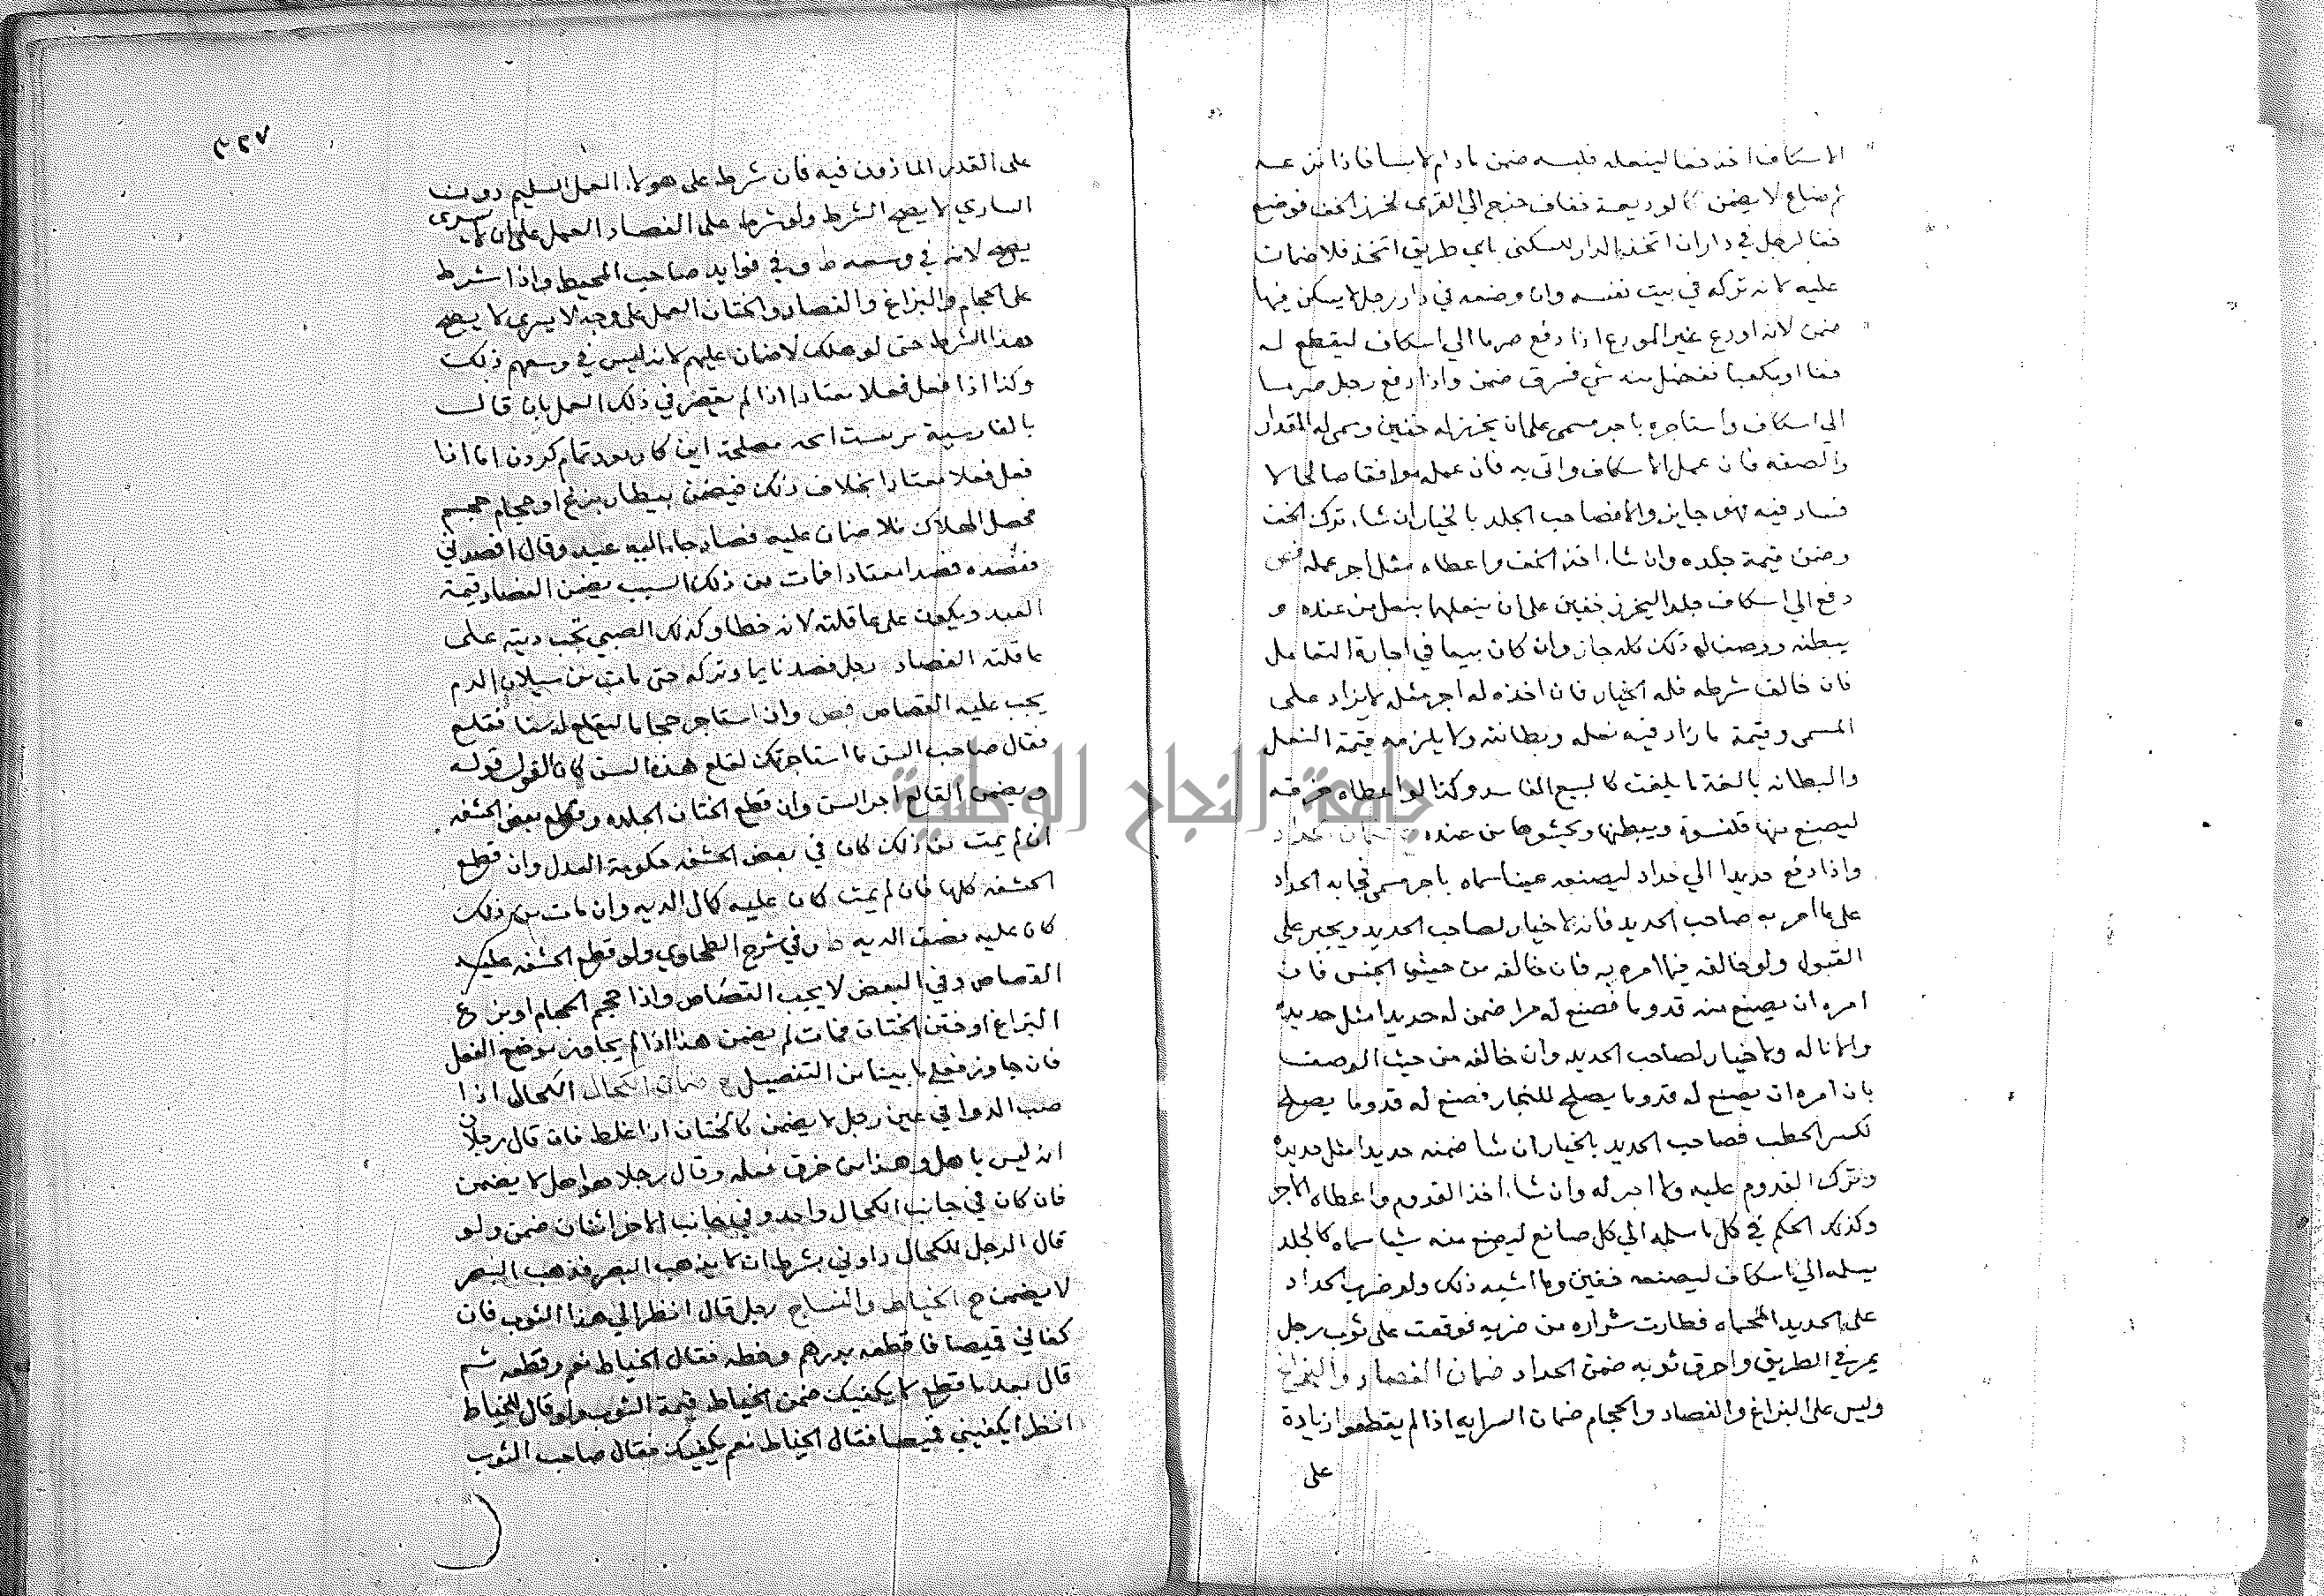 الاسكاف اخذ خفا لينعله فلبسه ضمن مادام لابسا فاذا نزعه
ثم ضاع لا يضمن كالوديعة خفاف خرج الي القرى لخرز الخف فوضع
خفا لرجل في دار ان اتخذ الدار للسكنى باي طريق اتخذ فلا ضمان
عليه لانه تركه في بيت نفسه وان وضعه في دار رجل لا يسكن فيها
ضمن لانه اودع غير المودع اذا دفع صرما الي اسكاف ليقطع له
خفا او مكعبا ففضل منه شي فسرق ضمن واذا دفع رجل صرما
الي اسكاف واستاجره باجر مسمى علىان يخرز له خفين وسمى له المقدار
والصفه فان عمل الاسكاف واتى به فان عمله موافقا صالحا لا
فساد فيه فهو جايز والا فصاحب الجلد بالخيار ان شاء ترك الخف
وضمن قيمة جلده وان شاء اخذ الخف واعطاه مثل اجر عمله
دفع الي اسكاف جلدا ليخرز خفين على ان ينعلها بنعل من عنده و
يبطنه ووصف له ذلك كله جاز وان كان بيعا في اجارة التعامل
فان خالف شرطه فله الخيار فان اخذه له اجر مثله لا يزاد على
المسمى وقيمة ما زاد فيه نعله وبطانته ولا يلزمه قيمة النعل
والبطانه بالغة ما بلغت كالبيع الفاسد وكذا لو اعطاه خرقه
ليصنع منها قلنسوة ويبطنها ويحشوها من عنده ضمان الحداد
واذا دفع حديدا الي حداد ليصنعه عينا سماه باجر مسمى فجا به الحداد
على ما امر به صاحب الحديد فانه لا خيار لصاحب الحديد ويجبر على
القبول ولو خالفه فيما امره به فان خالفه من حيث الجنس فان
امره ان يصنع منه قدوما فصنع له مرا ضمن له حديدا مثل حديده
والاناله ولا خيار لصاحب الحديد وان خالفه من حيث الوصف
بان امره ان يصنع له قدوما يصلح للنجار فصنع له قدوما يصلح
لكسر الحطب فصاحب الحديد بالخيار ان شا ضمنه حديدا مثل حديده
وترك القدوم عليه ولا اجر له وان شاء اخذ القدوم واعطاه الاجر
وكذلك الحكم في كل ما سلمه الي كل صانع ليصنع منه شيا سماه كالجلد
يسلمه الي اسكاف ليصنعه خفين وما اشبه ذلك ولو ضرب الحداد
على الحديد المحماه فطارت شراره من ضربه فوقعت على ثوب رجل
يمر في الطريق واحرق ثوبه ضمن الحداد ضمان الفصاد والبزاغ
وليس على البزاغ والفصاد والحجام ضمان السرايه اذا لم يقطعوا زيادة
على
على القدر الماذون فيه فان شرط على هولاء العمل السليم دون
الساري لا يصح الشرط ولو شرط على الفصاد العمل على ان لا يسرى
يصح لانه في وسعه ط وفي فوايد صاحب المحيط واذا شرط
على الحجام والبزاغ والفصاد والختان العمل على وجه لا يسرى لا يصح
هذا الشرط حتى لو هلك لا ضمان عليهم لانه ليس في وسعهم ذلك
وكذا اذا فعل فعلا معتادا اذا لم يقصر في ذلك العمل بان قالت
بالفارسية مصلحة اين كار بود تمام كردن اما اذا
فعل فعلا معتادا بخلاف ذلك فيضمن بيطار بزغ او حجام حجم
فحصل الهلاك فلا ضمان عليه فصاد جاء اليه عبد وقال افصدني
ففصده فصدا معتادا فمات من ذلك السبب يضمن الفصاد قيمة
العبد ويكون على عاقلته لانه خطا وكذلك الصبي تجب ديته على
عاقلته الفصاد رجل فصد نايما وتركه حتى مات من سيلان الدم
يجب عليه القصاص وان استاجر حجاما ليقلع له سنا فقلع
فقال صاحب السن ما استاجرتك لقلع هذه السن كان القول قوله
ويضمن القالع اجر السن وان قطع الختان الجلده وقطع بعض الحشفه
ان لم يمت من ذلك كان في بعض الحشفه حكومة العدل وان قطع
الحشفه كلها فان لم يمت كان عليه كمال الديه وان مات من ذلك
كان عليه نصف الديه ط وفي شرح الطحاوي ولو قطع الحشفه عليه
القصاص وفي البعض لا يجب القصاص واذا حجم الحجام او بزغ
البزاغ او ختن الختان فمات لم يضمن هذا اذا لم يجاوز موضع الفعل
فان جاوز فعلى ما بينا من التفصيل ضمان الكحال الكحال اذا
صب الدوا في عين رجل لا يضمن كالختان اذا غلط فان قال رجلان
انه ليس باهل وهذا من خرق فعله وقال رجلا هو اهل لا يضمن
فان كان في جانب الكحال واحد وفي جانب الاخر اثنان ضمن ولو
قال الرجل للكحال داوني بشرط ان لا يذهب البصر فذهب البصر
لا يضمن ح الخياط والنساج رجل قال انظر الي هذا الثوب فان
كفاني قميصا فاقطعه بدرهم وخطه فقال الخياط نعم وقطعه ثم
قال بعد ما قطع لا يكفيك ضمن الخياط قيمة الثوب ولو قال للخياط
انظر ايكفيني قميصا فقال الخياط نعم يكفيك فقال صاحب الثوب
جامعة النجاح الوطنية